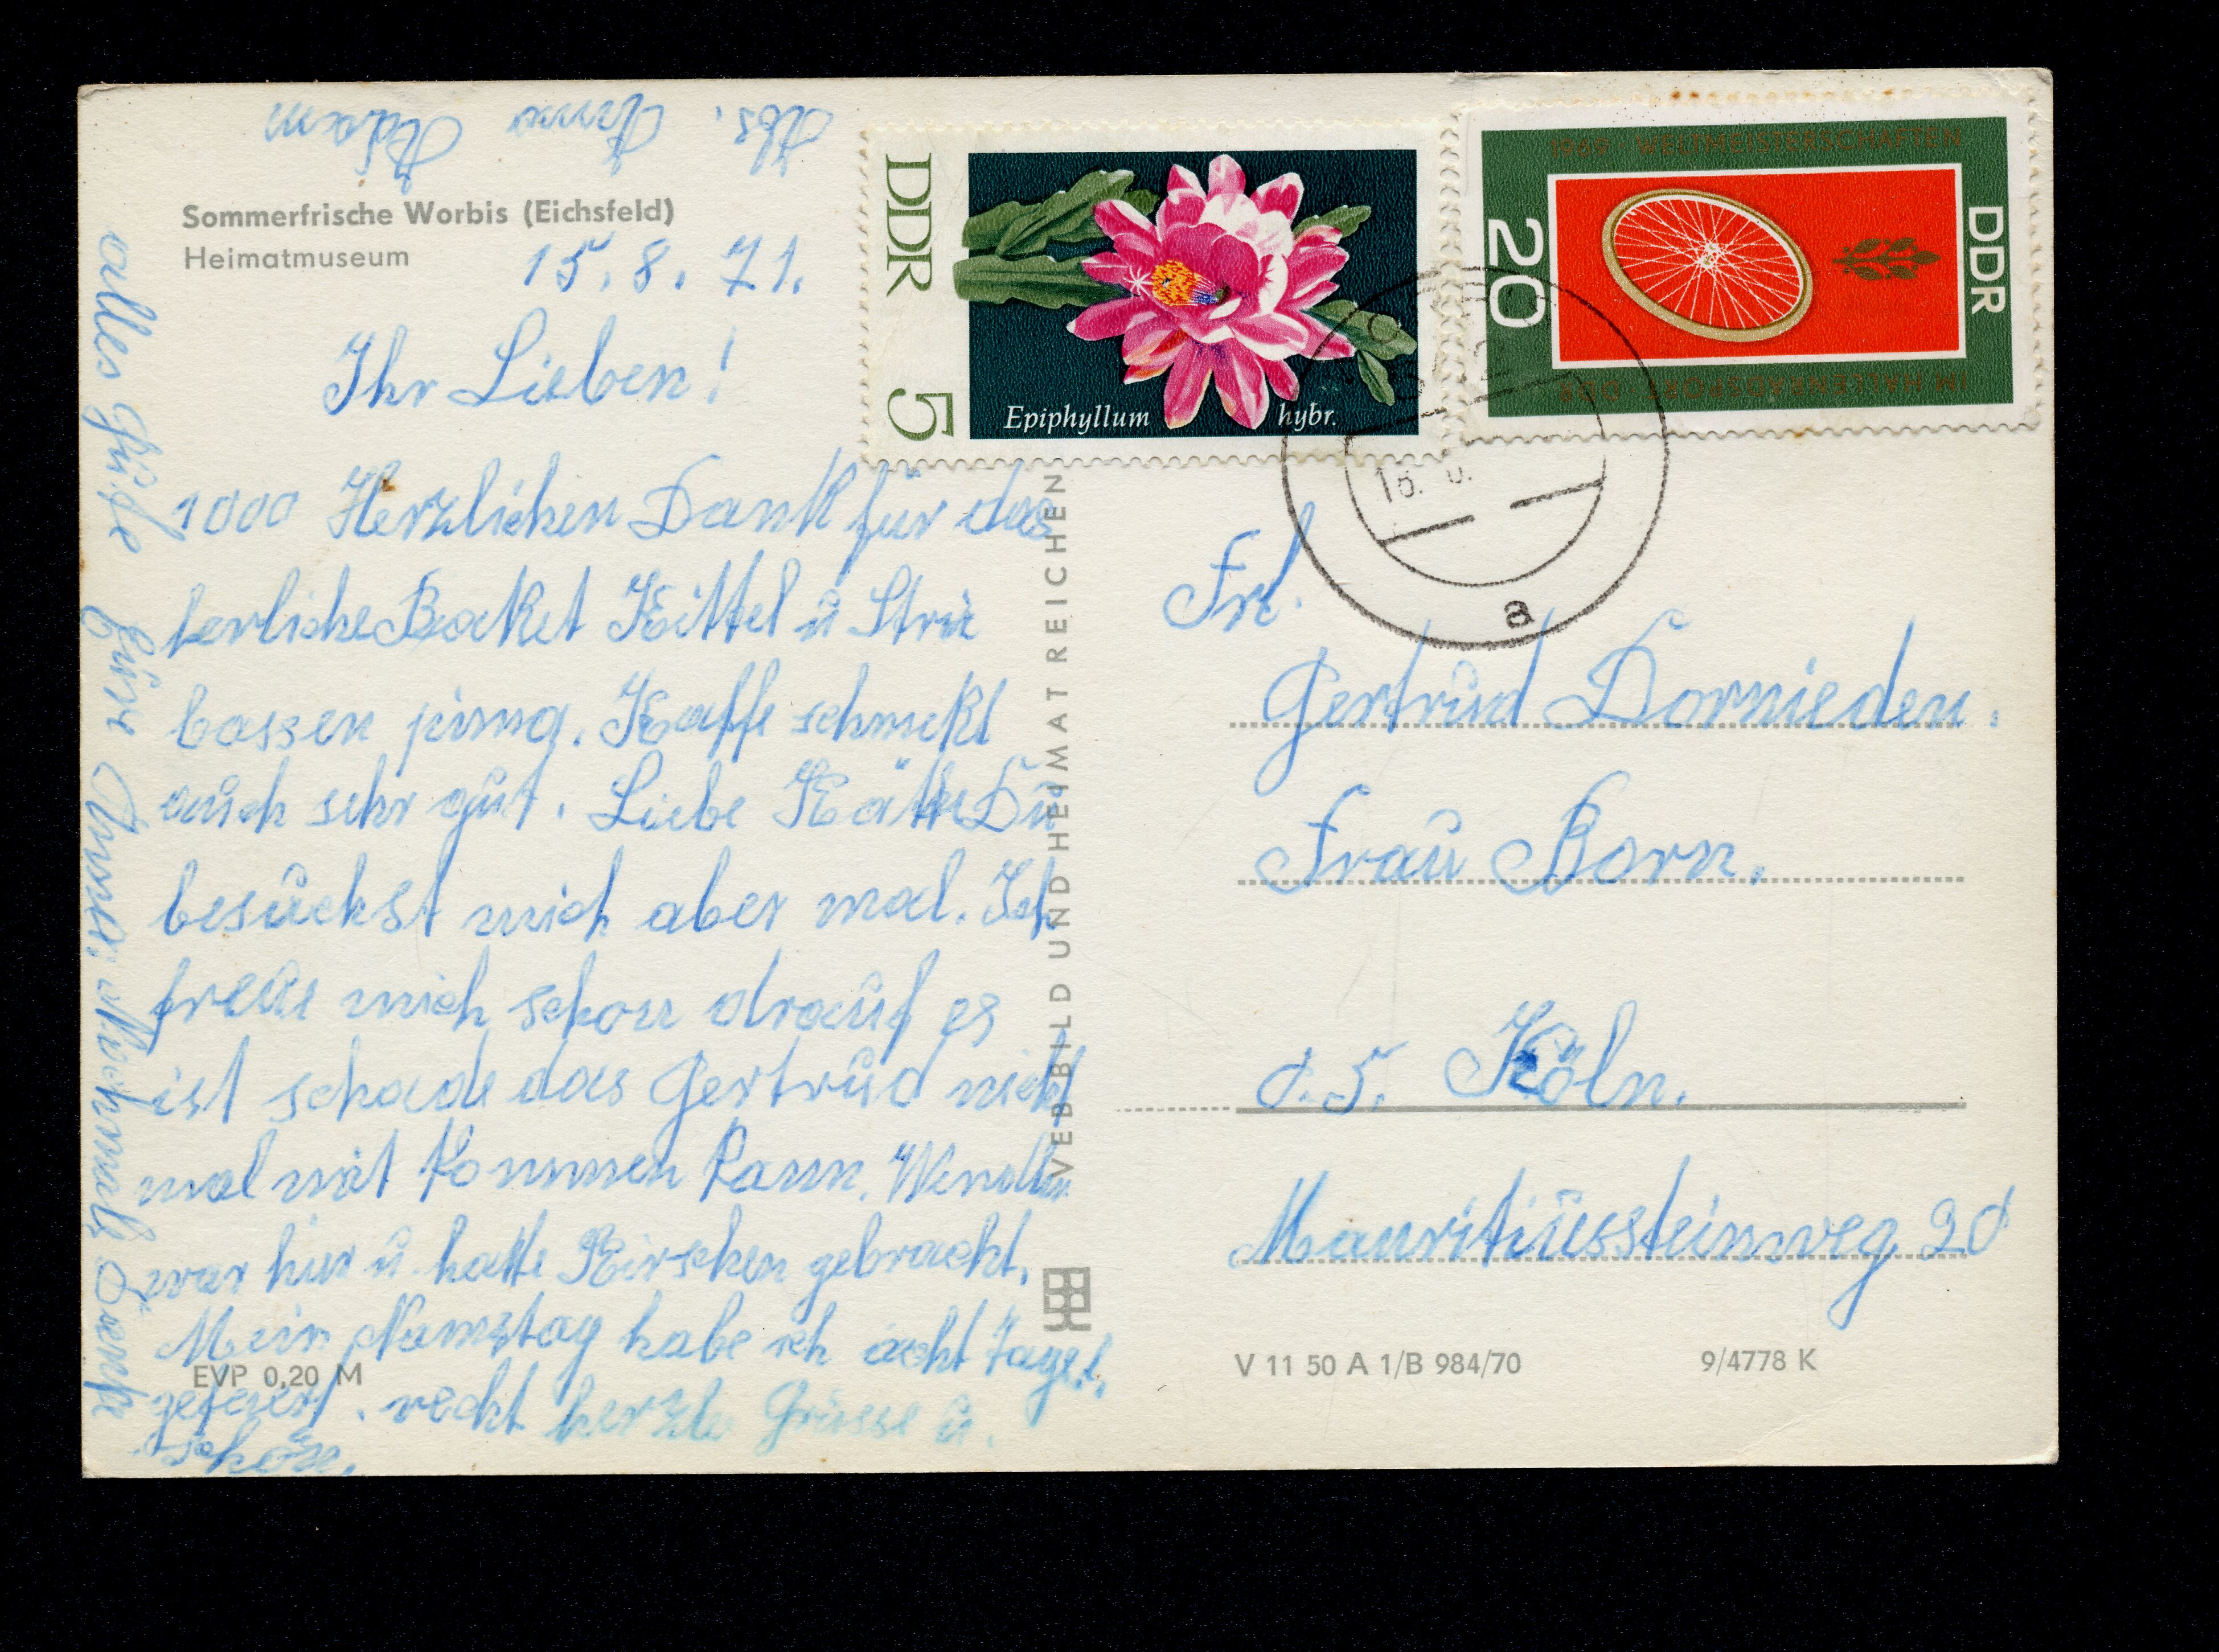 Abs. Anna Adam
Sommerfrische Worbis (Eichsfeld)
Heimatmuseum
15.8.71.
Ihr Lieben!
1000 Herzlichen Dank für das
herliche Packet Kittel u Strü
bassen prima. Kaffe schmekt
auch sehr gut. Liebe Käthe Du
besuchst mich aber mal. Ich
freue mich schon drauf es
ist schade das Gertrud nicht
mal mit kommen kann.
war hier u. hatte Kirschen gebracht.
Mein Namstag habe ich acht Tage.
gefeiert. recht herzle Grüsse u.
schön.
alles gute Eure Anna. Nochmals Danke
DDR 5
Epiphyllum hybr.
1969 WELTMEISTERSCHAFTEN
IM HALLENRADSPORT DDR
DDR 20
a
VEB BILD UND HEIMAT REICHEN
Frl.
Gertrud Dornieden.
Frau Born.
d. 5. Köln.
Mauritiussteinweg 2d
EVP 0,20 M
V 11 50 A 1/B 984/70
9/4778 K